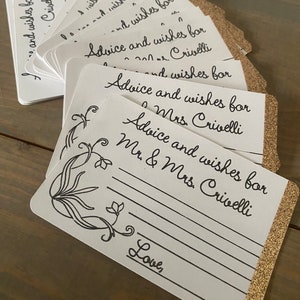 Advice and wishes for
Advice and wishes for
Advice and wishes for
& Mrs. Crivelli
Advice and wishes for
Mr. & Mrs. Crivelli
Love,